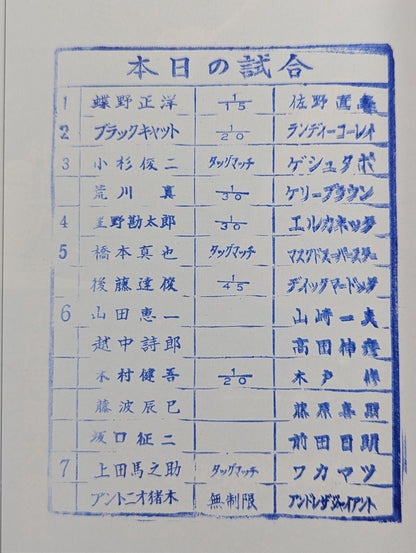 本日の試合
1 蝶野正洋 1/15 佐野直
2 ブラックキャット 1/20 ランディーコーレイ
3 小杉俊二 タッグマッチ ゲシュタポ
荒川真 1/30 ケリーブラウン
4 星野勘太郎 1/30 エルカネック
5 橋本真也 タッグマッチ マスクドスーパースター
後藤達俊 1/45 ディックマードック
6 山田恵一 山崎一夫
越中詩郎 高田伸彦
木村健吾 1/20 木戸修
藤波辰巳 藤原喜明
坂口征二 前田日明
7 上田馬之助 タッグマッチ ワカマツ
アントニオ猪木 無制限 アンドレザジャイアント